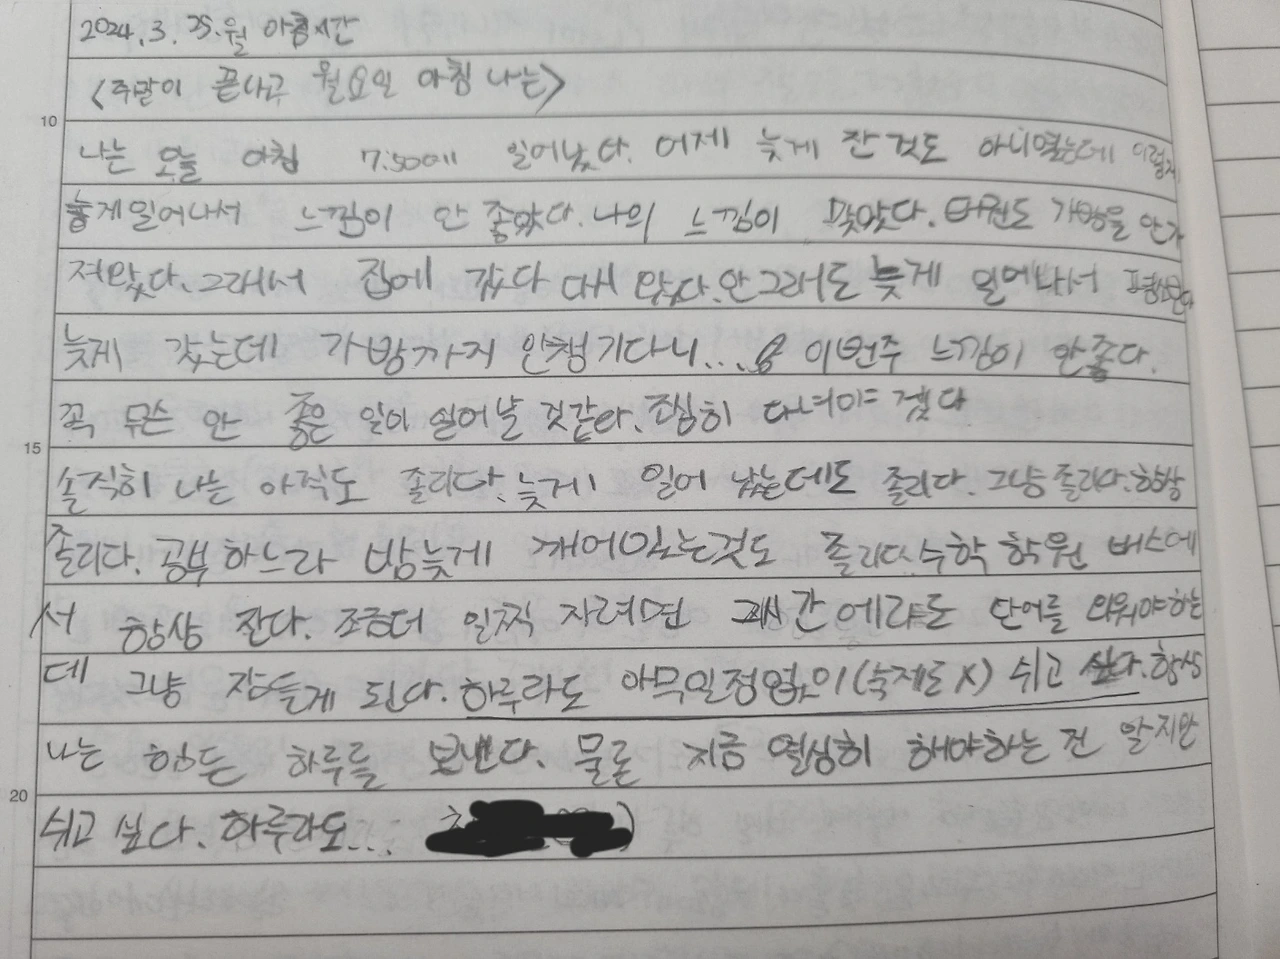 2024.3.25.월 아침시간
<주말이 끝나고 월요일 아침 나는>
10
나는 오늘 아침 7:50에 일어났다. 어제 늦게 잔것도 아니였는데 이렇게
늦게일어나서 느낌이 안 좋았다. 나의 느낌이 맞았다. 가방을 안가
져왔다. 그래서 집에 갔다 다시 왔다. 안그래도 늦게 일어나서
늦게 갔는데 가방까지 안챙기다니... 이번주 느낌이 안좋다.
꼭 무슨 안 좋은 일이 일어날 것같다. 조심히 다녀야 겠다
15
솔직히 나는 아직도 졸리다. 늦게 일어 났는데도 졸리다. 그냥 졸리다. 항상
졸리다. 공부하느라 밤늦게 깨어있는것도 졸리다. 수학 학원 버스에
서 항상 잔다. 조금더 일찍 자려면 그시간에라도 단어를 외워야하는
데 그냥 잠들게 된다. 하루라도 아무일정없이(숙제도 X) 쉬고 싶다. 항상
나는 힘든 하루를 보낸다. 물론 지금 열심히 해야하는 건 알지만
20
쉬고 싶다. 하루라도...